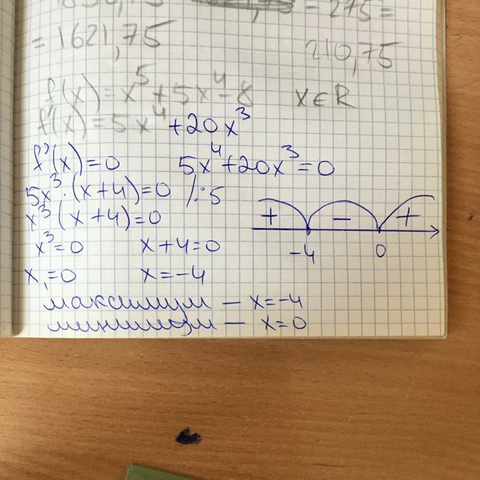 - 275 =
= 1621,75
210,75
f(x) = x⁵ + 5x⁴ - 8 x∈R
f'(x) = 5x⁴ + 20x³
f'(x) = 0 5x⁴ + 20x³ = 0
5x³·(x+4) = 0 /:5
x³(x+4) = 0
+ - +
x³ = 0 x+4 = 0
-4 0
x₁ = 0 x = -4
максимум — x = -4
минимум — x = 0